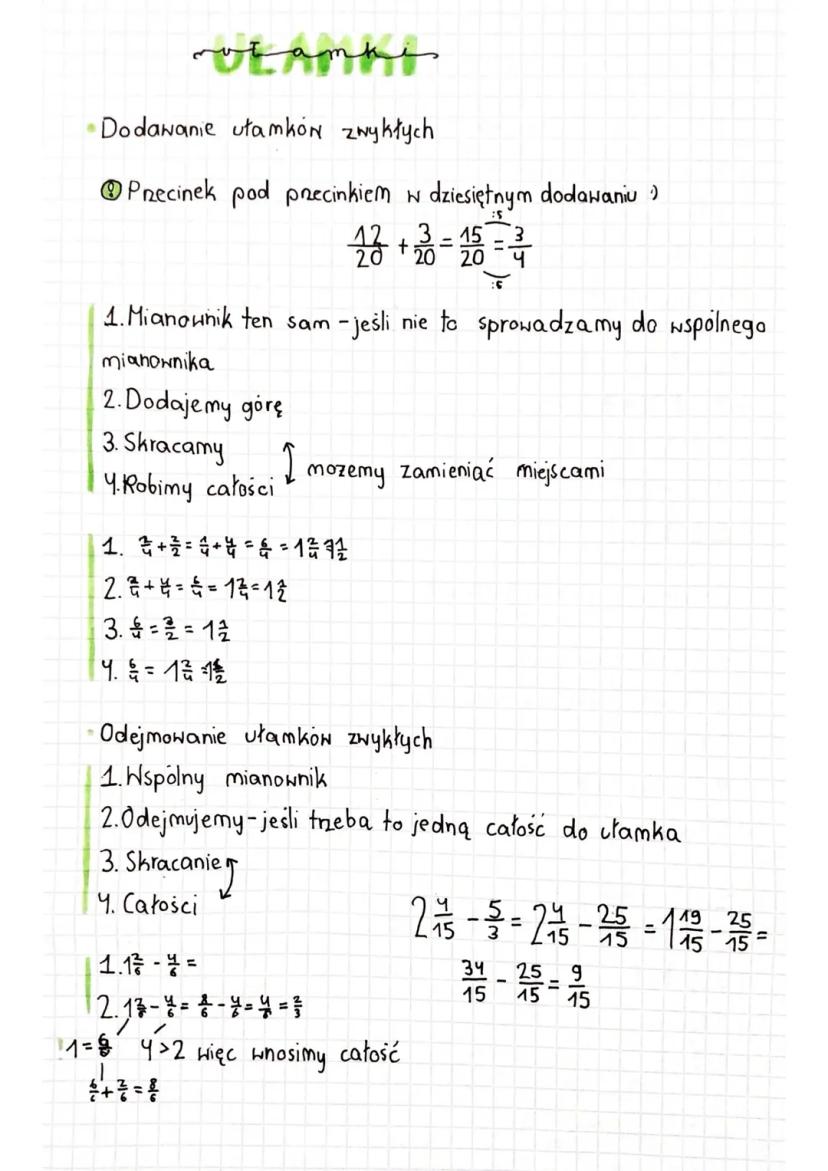 UŁAMKI
ułamki
• Dodawanie ułamków zwykłych
! Przecinek pod przecinkiem w dziesiętnym dodawaniu :)
12/20 + 3/20 = 15/20 = 3/4
:5
:5
1. Mianownik ten sam - jeśli nie to sprowadzamy do wspólnego
mianownika
2. Dodajemy górę
3. Skracamy
4. Robimy całości ↕ mozemy zamieniąć miejscami
1. 2/4 + 2/2 = 4/4 = 6/4 = 1 2/4 1 1/2
2. 2/4 + 4/4 = 6/4 = 1 2/4 = 1 1/2
3. 6/4 = 3/2 = 1 1/2
4. 6/4 = 1 2/4
• Odejmowanie ułamków zwykłych
1. Wspólny mianownik
2. Odejmujemy - jeśli trzeba to jedną całość do ułamka
3. Skracanie
4. Całości
2 4/15 - 5/3 = 2 4/15 - 25/15 = 1 19/15 - 25/15 =
34/15 - 25/15 = 9/15
1. 1 2/6 - 4/6 =
2. 1 2/6 - 4/6 = 8/6 - 4/6 = 4/6 = 2/3
!1 = 6/6 4>2 więc wnosimy całość
6/6 + 2/6 = 8/6